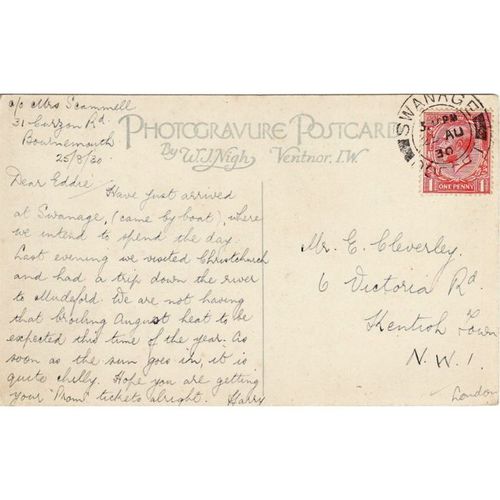 a/c Mrs Scammell
31 Curzon Rd.
Bournemouth
25/8/30
PHOTOGRAVURE POSTCARD
By W.J. Nigh, Ventnor, I.W.
Dear Eddie, Have just arrived
at Swanage, (came by boat), where
we intend to spend the day.
Last evening we visited Christchurch
and had a trip down the river
to Mudeford. We are not having
that broiling August heat to be
expected this time of the year. As
soon as the sun goes in, it is
quite chilly. Hope you are getting
your "Prom" tickets alright. Harry
SWANAGE
PM
AU
30
1 ONE PENNY 1
Mr. E. Cleverley,
6 Victoria Rd.
Kentish Town
N.W.1.
London